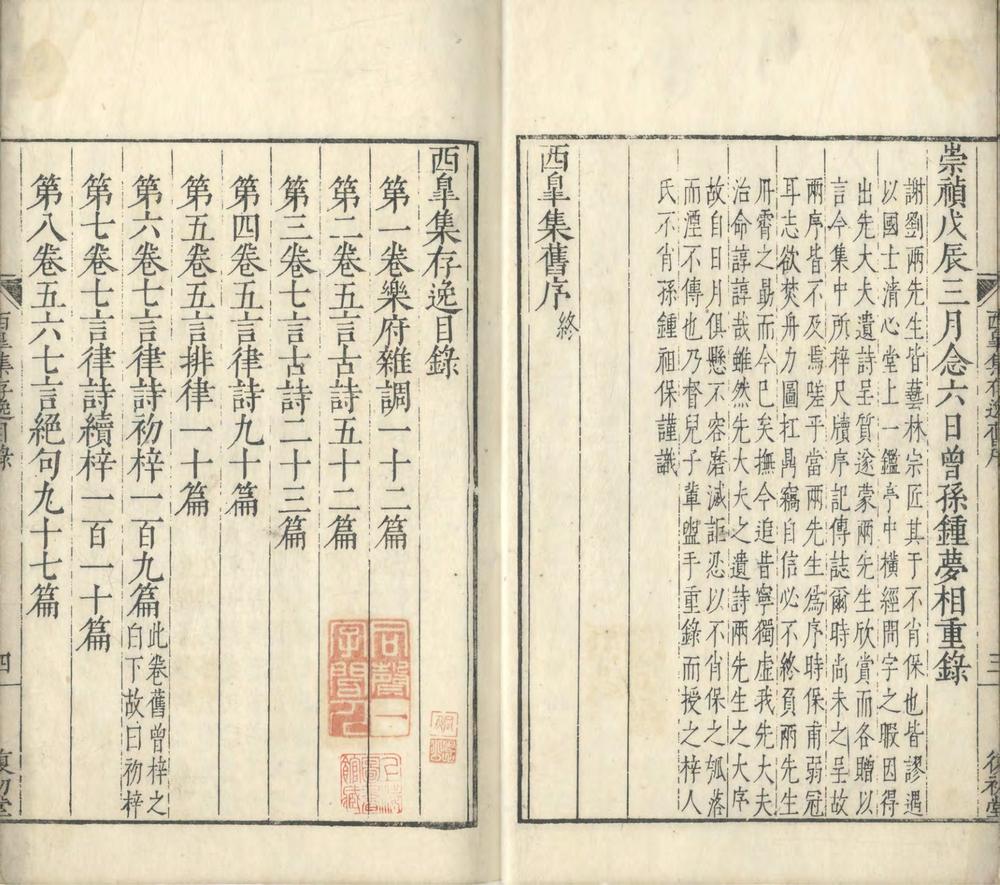 崇禎戊辰三月念六日曾孫鍾夢相重錄
謝劉兩先生皆藝林宗匠其于不肖保也皆謬遇
以國士清心堂上一鑑亭中橫經問字之暇因得
出先大夫遺詩呈質遂蒙兩先生欣賞而各贈以
言今集中所梓尺牘序記傳誌爾時尚未之呈故
兩序皆不及焉嗟乎當兩先生為序時保甫弱冠
耳志欲焚舟力圖扛鼎竊自信必不終負兩先生
丹霄之勗而今已矣撫今追昔寧獨虛我先大夫
治命諄諄哉雖然先大夫之遺詩兩先生之大序
故自日月俱懸不容磨滅詎忍以不肖保之瓠落
而湮不傳也乃督兒子輩盥手重錄而授之梓人
氏不肖孫鍾祖保謹識
西臯集舊序 終
西臯集存逸舊序
三
復初堂
西臯集存逸目錄
第一卷樂府雜調一十二篇
第二卷五言古詩五十二篇
第三卷七言古詩二十三篇
第四卷五言律詩九十篇
第五卷五言排律一十篇
第六卷七言律詩初梓一百九篇 此卷舊曾梓之
白下故曰初梓
第七卷七言律詩續梓一百一十篇
第八卷五六七言絕句九十七篇
西臯集存逸目錄
四
復初堂